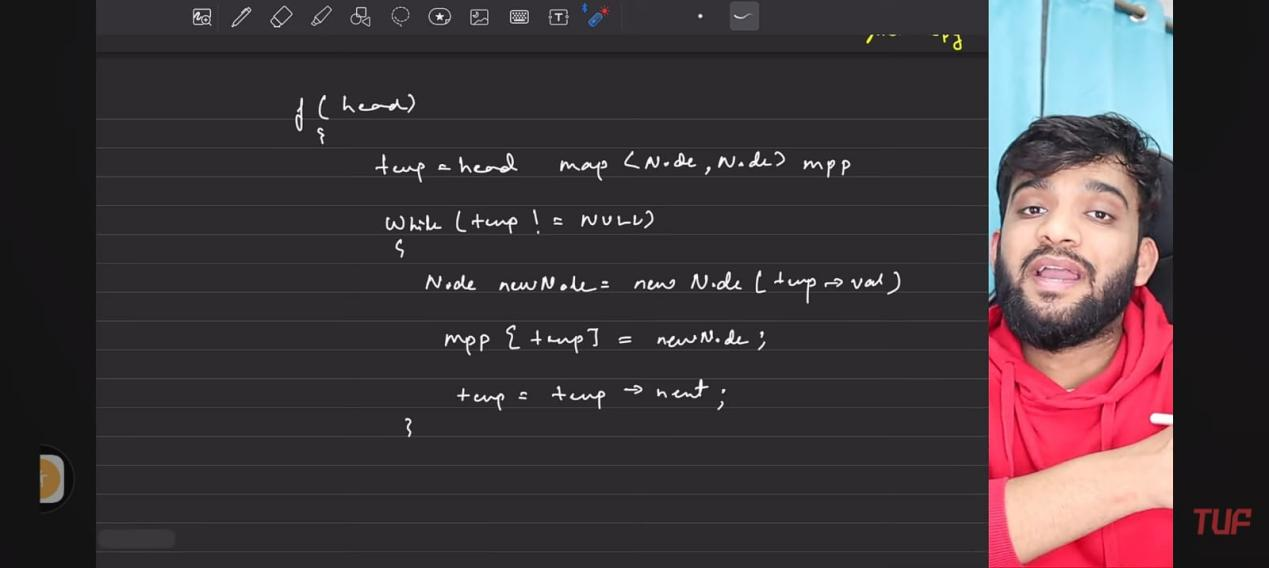 f(head)
{
temp = head map <Node, Node> mpp
while (temp != NULL)
{
Node newNode = new Node (temp → val)
mpp [temp] = newNode;
temp = temp → next;
}
TUF